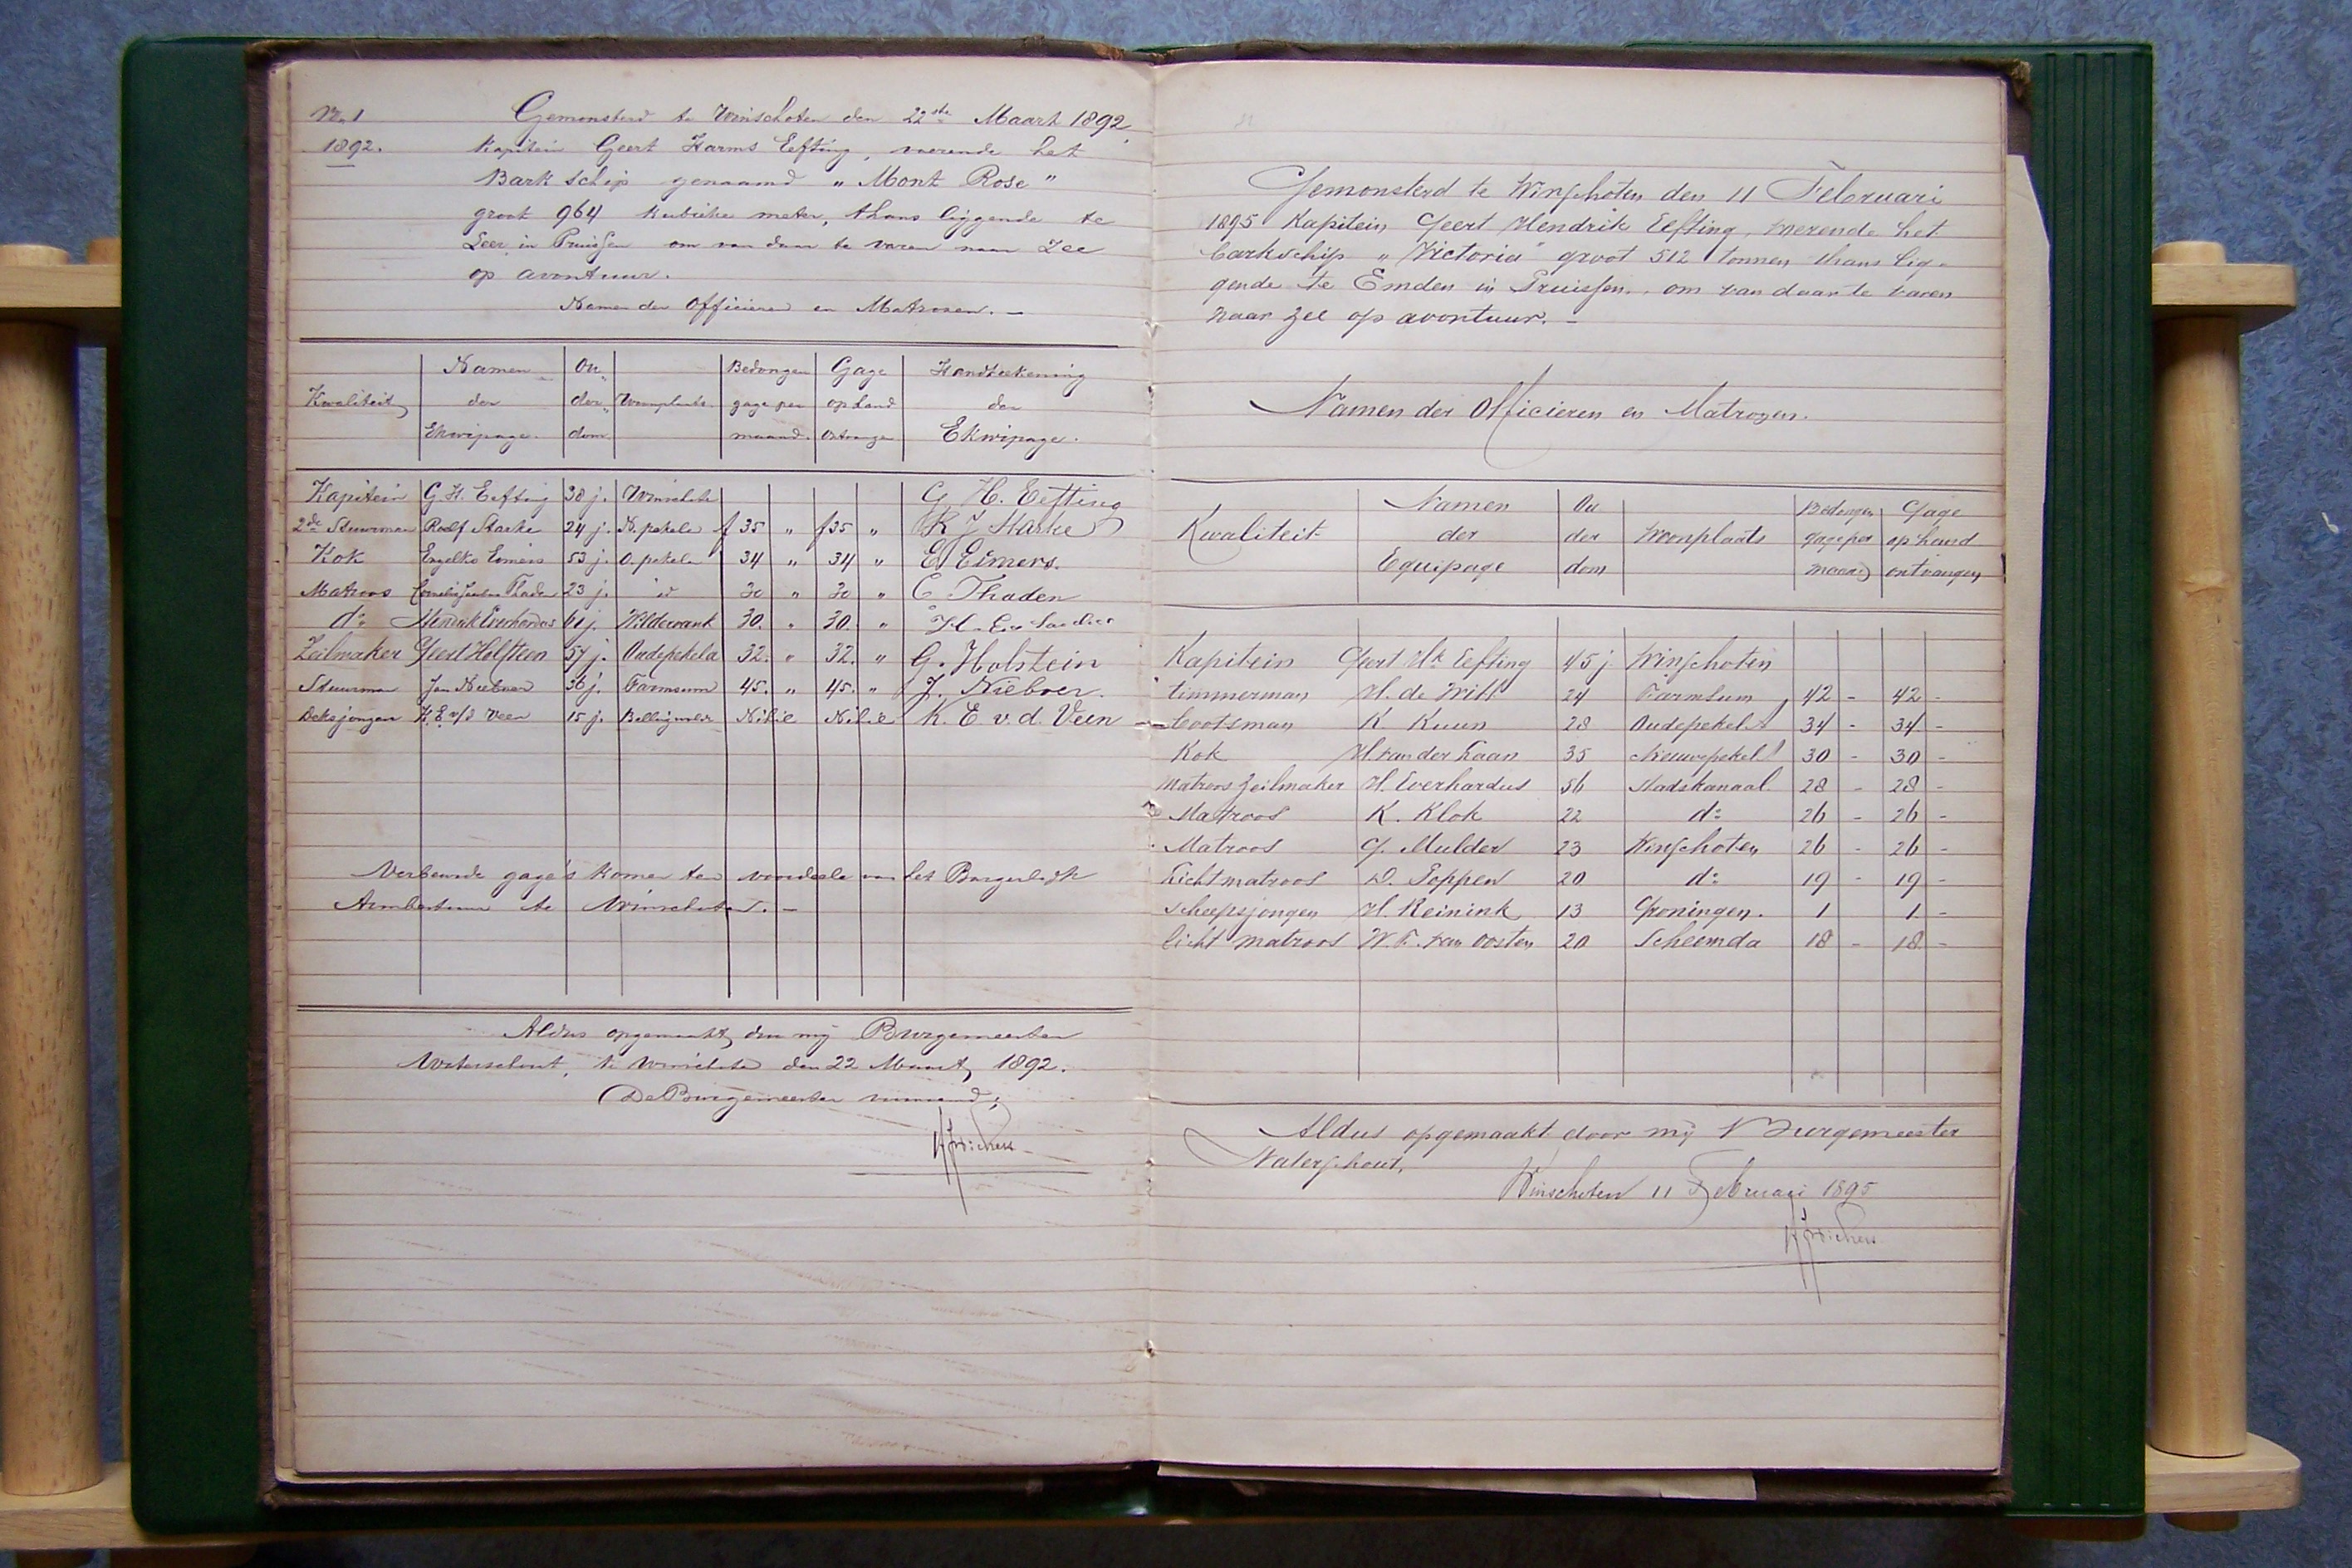 No. 1 Gemonsterd te Winschoten den 22ste Maart 1892,
1892. Kapitein Geert Harms Eefting, voerende het
Bark schip genaamd "Mont Rose"
groot 964 kubieke meter, thans liggende te
Leer in Pruissen om van daar te varen naar Zee
op avontuur.
Namen der Officieren en Matrozen. —
Namen Ou- Bedongen Gage Handteekening
Kwaliteit der der- Woonplaats. gage per op hand der
Ekwipage. dom. maand. ontvangen Ekwipage.
Kapitein G. H. Eefting 38 j. Winschoten G H. Eefting
2de Stuurman Roelf Starke 24 j. N. pekela f 35 " f 35 " R J Starke
Kok Engelke Eimers 53 j. O. pekela 34 " 34 " E Eimers.
Matroos Cornelis Thaden 23 j. id 30 " 30 " C Thaden
do Hendrik Everhardus 61 j. Wildervank 30. " 30. "
Zeilmaker Geert Holstein 57 j. Oudepekela 32. " 32. " G. Holstein
Stuurman Jan Nieboer 36 j. Farmsum 45. " 45. " J. Nieboer.
Deksjongen K. E. v/d Veen 15 j. Bellingwolde Nihil Nihil K. E v. d. Veen
Verbeurde gage's komen ten voordeele van het Burgerlijk
Armbestuur te Winschoten. —
Aldus opgemaakt door mij Burgemeester
Waterschout, te Winschoten den 22 Maart 1892.
De Burgemeester voornoemd,
Gemonsterd te Winschoten den 11 Februari
1895 Kapitein Geert Hendrik Eefting, voerende het
barkschip "Victoria" groot 512 tonnen thans lig-
gende te Emden in Pruissen, om van daar te varen
naar zee op avontuur. —
Namen der Officieren en Matrozen.
Namen Ou Bedongen Gage
Kwaliteit der der Woonplaats gage per op hand
Equipage dom maand ontvangen
Kapitein Geert Hk Eefting 45 j Winschoten
timmerman H. de Witt 24 Farmsum 42 - 42 -
bootsman K Kuun 28 Oudepekela 34 - 34 -
Kok H van der Laan 35 Nieuwepekela 30 - 30 -
Matroos Zeilmaker H. Everhardus 56 Stadskanaal 28 - 28 -
Matroos K. Klok 22 do 26 - 26 -
Matroos G. Mulder 23 Winschoten 26 - 26 -
Lichtmatroos D. Poppen 20 do 19 - 19 -
scheepsjongen H. Reinink 13 Groningen. 1 1 -
licht matroos W. F. van Oosten 20 Scheemda 18 - 18 -
Aldus opgemaakt door mij Burgemeester
Waterschout,
Winschoten 11 Februari 1895